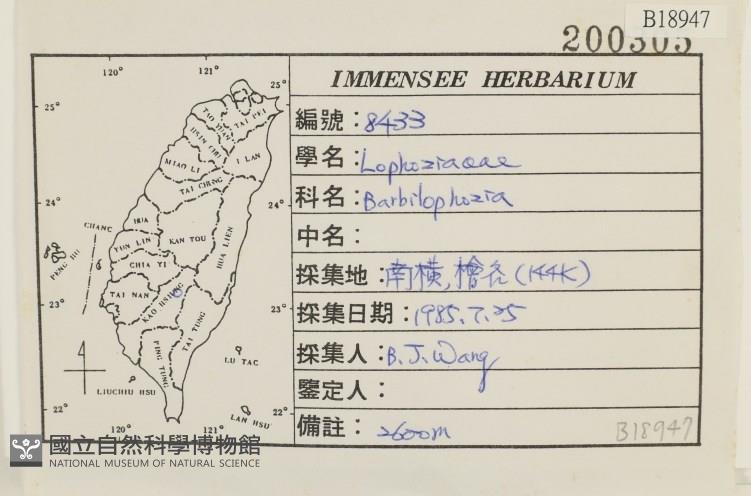 B18947
200305
IMMENSEE HERBARIUM
編號：8433
學名：Lophoziaceae
科名：Barbilophozia
中名：
採集地：南橫,檜谷(144K)
採集日期：1985.7.25
採集人：B.J.Wang
鑒定人：
備註：2600m
B18947
120° 121°
25° 25°
TAO YUAN
TAI PEI
HSIN CHU
I LAN
MIAO LI
TAI CHUNG
24° 24°
CHANG HUA
YUN LIN
KAN TOU
HUA LIEN
PENG HU
CHIA YI
TAI NAN
KAO HSIUNG
23° 23°
TAI TUNG
PING TUNG
LU TAO
LIUCHIU HSU
LAN HSU
22° 22°
120° 121°
國立自然科學博物館
NATIONAL MUSEUM OF NATURAL SCIENCE